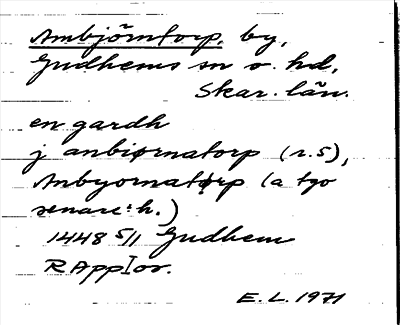 Ambjörntorp, by,
Gudhems sn o. hd,
Skar. län.
en gardh
j anbiørnatorp (r. 5),
Anbyornatørp (a tgo
senare: h.)
1448 5/1 Gudhem
RAppIor.
E. L. 1971